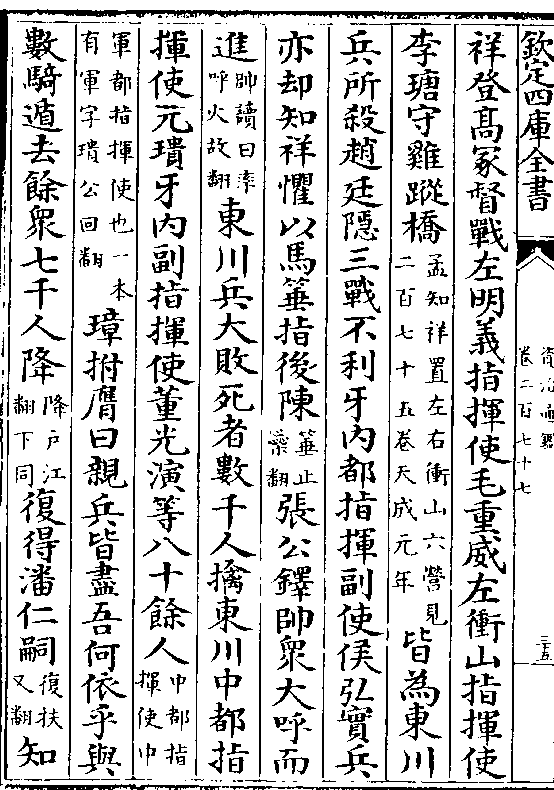 欽定四庫全書
資治通鑑
卷二百七十七
三五
祥登髙冢督戰左明義指揮使毛重威左衝山指揮使
李瑭守雞蹤橋孟知祥置左右衝山六營見二百七十五卷天成元年皆為東川
兵所殺趙廷隱三戰不利牙内都指揮副使侯弘實兵
亦却知祥懼以馬箠指後陳箠止蘂翻張公鐸帥衆大呼而
進帥讀曰率呼火故翻東川兵大敗死者數千人擒東川中都指
揮使元璝牙内副指揮使董光演等八十餘人中都指揮使中
軍都指揮使也一本有軍字璝公回翻璋拊膺曰親兵皆盡吾何依乎與
數騎遁去餘衆七千人降降戸江翻下同復得潘仁嗣復扶又翻知